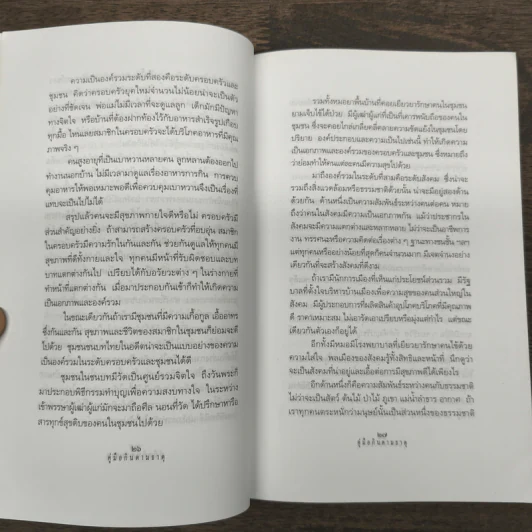 ความเป็นองค์รวมระดับที่สองคือระดับครอบครัวและ
ชุมชน คิดว่าครอบครัวยุคใหม่จำนวนไม่น้อยน่าจะเป็นตัว
อย่างที่ชัดเจน พ่อแม่ไม่มีเวลาที่จะดูแลลูก เด็กมักมีปัญหา
ทางจิตใจ หรือบ้านที่ต้องฝากท้องไว้กับอาหารสำเร็จรูปเกือบ
ทุกมื้อ ไหนเลยสมาชิกในครอบครัวจะได้บริโภคอาหารที่มีคุณ
ภาพจริง ๆ
คนสูงอายุที่เป็นเบาหวานหลายคน ลูกหลานต้องออกไป
ทำงานนอกบ้าน ไม่มีเวลามาดูแลเรื่องอาหารการกิน การควบ
คุมอาหารให้พอเหมาะพอดีเพื่อควบคุมเบาหวานจึงเป็นเรื่องที่
แทบจะเป็นไปไม่ได้
สรุปแล้วคนจะมีสุขภาพกายใจดีหรือไม่ ครอบครัวมี
ส่วนสำคัญอย่างยิ่ง ถ้าสามารถสร้างครอบครัวที่อบอุ่น สมาชิก
ในครอบครัวมีความรักในกันและกัน ช่วยกันดูแลให้ทุกคนมี
สุขภาพที่ดีทั้งกายและใจ ทุกคนมีหน้าที่รับผิดชอบและบท
บาทแตกต่างกันไป เปรียบได้กับอวัยวะต่าง ๆ ในร่างกายที่
ทำหน้าที่แตกต่างกัน เมื่อมาประกอบกันเข้าก็ทำให้เกิดความ
เป็นเอกภาพและองค์รวม
ในขณะเดียวกันถ้าเรามีชุมชนที่มีความเกื้อกูล เอื้ออาทร
ซึ่งกันและกัน สุขภาพและชีวิตของสมาชิกในชุมชนก็ย่อมจะดี
ไปด้วย ชุมชนชนบทไทยในอดีตน่าจะเป็นแบบอย่างของความ
เป็นองค์รวมในระดับครอบครัวและชุมชนได้ดี
ชุมชนในชนบทมีวัดเป็นศูนย์รวมจิตใจ ถึงวันพระก็
มาประกอบพิธีกรรมทำบุญเพื่อความสงบทางใจ ในระหว่าง
เข้าพรรษาผู้เฒ่าผู้แก่มักจะมาถือศีล นอนที่วัด ได้ปรึกษาหารือ
สารทุกข์สุกดิบของคนในชุมชนไปด้วย
๒๖
คู่มือกินตามธาตุ
รวมทั้งหมอยาพื้นบ้านที่คอยเยียวยารักษาคนในชุมชน
ยามเจ็บไข้ได้ป่วย มีผู้เฒ่าผู้แก่ที่เป็นที่เคารพนับถือของคนใน
ชุมชน ซึ่งจะคอยไกล่เกลี่ยคลี่คลายความขัดแย้งในชุมชนโดย
ปริยาย องค์ประกอบและความเป็นไปเช่นนี้ ทำให้เกิดความ
เป็นเอกภาพและองค์รวมของครอบครัวและชุมชน ซึ่งหมายถึง
ว่าย่อมทำให้คนแต่ละคนมีความสุขไปด้วย
มาถึงองค์รวมในระดับที่สามคือระดับสังคม ซึ่งน่าจะ
รวมถึงสิ่งแวดล้อมหรือธรรมชาติด้วยนั้น น่าจะมีอยู่สองด้าน
ด้วยกัน ด้านหนึ่งเป็นความสัมพันธ์ระหว่างคนต่อคน หมาย
ถึงว่าคนในสังคมมีความเป็นเอกภาพกัน แม้ว่าประชากรใน
สังคมจะมีความแตกต่างและหลากหลาย ไม่ว่าจะเป็นอาชีพการ
งาน ทรรศนะหรือความคิดต่อเรื่องต่าง ๆ ฐานะทางชนชั้น ฯลฯ
แต่ทุกคนหรืออย่างน้อยที่สุดก็คนจำนวนมาก มีจุดร่วมอย่าง
เดียวกันที่จะสร้างสังคมที่ดีงาม
ถ้าเรามีนักการเมืองที่เห็นแก่ประโยชน์ส่วนรวม มีรัฐ
บาลที่ตั้งใจบริหารบ้านเมืองเพื่อความสุขของคนส่วนใหญ่ใน
สังคม มีผู้ประกอบการที่ผลิตสินค้าอุปโภคบริโภคที่มีคุณภาพ
ดี ราคาเหมาะสม ไม่เอารัดเอาเปรียบหรือมุ่งแต่กำไร แต่ขณะ
เดียวกันตัวเองก็อยู่ได้
อีกทั้งมีหมอมีโรงพยาบาลที่เยียวยารักษาคนไข้ด้วย
ความใส่ใจ พลเมืองของสังคมรู้ทั้งสิทธิและหน้าที่ นึกดูว่า
จะเป็นสังคมที่น่าอยู่และเอื้อต่อการมีสุขภาพดีได้เพียงไร
อีกด้านหนึ่งก็คือความสัมพันธ์ระหว่างคนกับธรรมชาติ
ไม่ว่าจะเป็นสัตว์ ต้นไม้ ป่าไม้ ภูเขา แม่น้ำลำธาร อากาศ ถ้า
เราทุกคนตระหนักว่ามนุษย์นั้นเป็นส่วนหนึ่งของธรรมชาติ
๒๗
คู่มือกินตามธาตุ